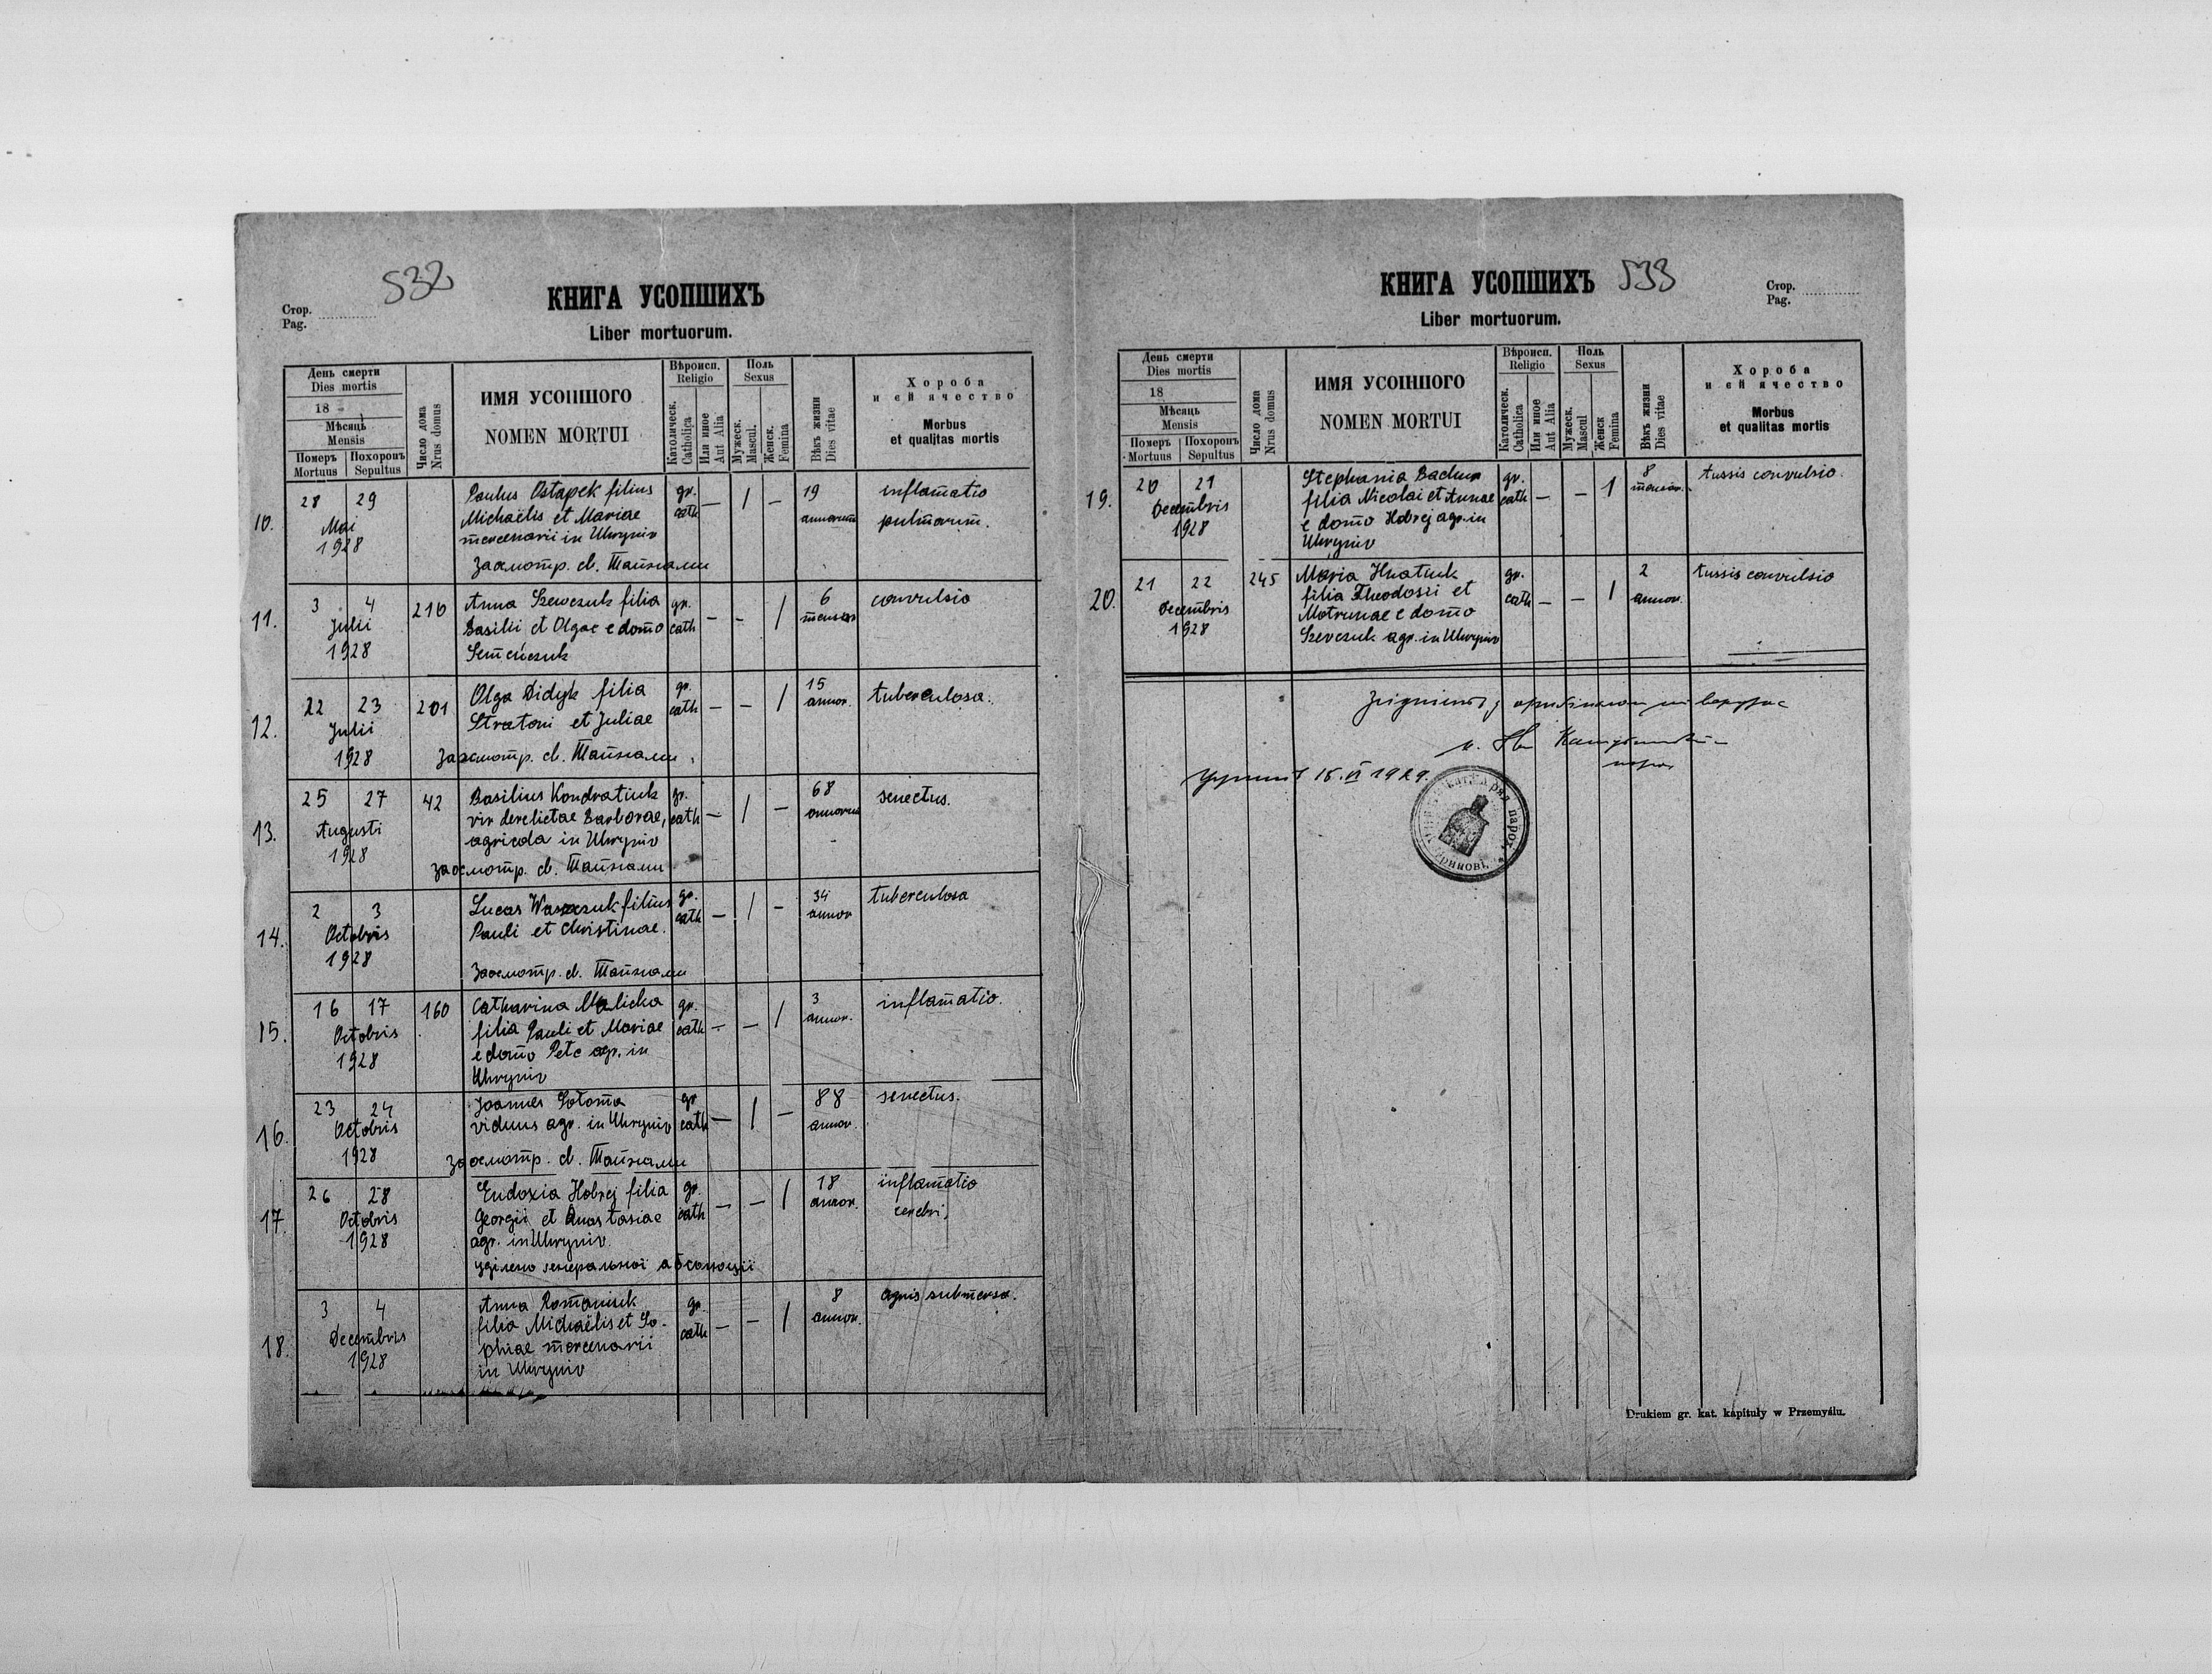 532
Стор.
Pag.
КНИГА УСОПШИХЪ
Liber mortuorum.
День смерти
Dies mortis
18
Мѣсяцъ
Mensis
Померъ
Mortuus
Похоронъ
Sepultus
Число дома
Nrus domus
ИМЯ УСОПШОГО
NOMEN MORTUI
Вѣроисп.
Religio
Католическ.
Catholica
Или иное
Aut Alia
Поль
Sexus
Мужеск.
Mascul.
Женск.
Femina
Вѣкъ жизни
Dies vitae
Хороба
и єй ячество
Morbus
et qualitas mortis
10. 28 29 Mai 1928
Paulus Ostapek filius
Michaëlis et Mariae
mercenarii in Uhryniv
Заосмотр. св. Тайнами
gr. cath — 1 — 19 annorum
inflamatio
pulmorum.
11. 3 4 Julii 1928 210
Anna Szewczuk filia
Basilii et Olgae e domo
Semeńczuk
gr. cath — - 1 6 menses
convulsio
12. 22 23 Julii 1928 201
Olga Didyk filia
Stratoni et Juliae
Заосмотр. св. Тайнами.
gr. cath — — 1 15 annor.
tuberculosa.
13. 25 27 Augusti 1928 42
Basilius Kondratiuk
vir derelictae Barbarae,
agricola in Uhryniv
Заосмотр. св. Тайнами
gr. cath — 1 — 68 annorum
senectus.
14. 2 3 Octobris 1928
Lucas filius
Pauli et Christinae.
Заосмотр. св. Тайнами
gr. cath — 1 — 34 annor
tuberculosa
15. 16 17 Octobris 1928 160
Catharina Malicka
filia Pauli et Mariae
e domo Petc agr. in
Uhryniv
gr. cath — — 1 3 annor.
inflamatio.
16. 23 24 Octobris 1928
Joannes Sotoma
viduus agr. in Uhryniv
Заосмотр. св. Тайнами
gr cath — 1 — 88 annor.
senectus.
17 26 28 Octobris 1928
Eudoxia Hobrej filia
Georgii et Anastasiae
agr. in Uhryniv.
уділено генеральної абсолюції
gr. cath — — 1 18 annor.
inflamatio
cerebri,
18. 3 4 Decembris 1928
Anna Romaniuk
filia Michaëlis et So-
phiae mercenarii
in Uhryniv
gr. cath — — 1 8 annor.
aquis submersa.
КНИГА УСОПШИХЪ
533
Стор.
Pag.
Liber mortuorum.
День смерти
Dies mortis
18
Мѣсяць
Mensis
Померъ
Mortuus
Похоронъ
Sepultus
Число дома
Nrus domus
ИМЯ УСОПШОГО
NOMEN MORTUI
Вѣроисп.
Religio
Католическ.
Catholica
Или иное
Aut Alia
Поль
Sexus
Мужеск.
Mascul
Женск
Femina
Вѣкъ жизни
Dies vitae
Хороба
и єй ячество
Morbus
et qualitas mortis
19. 20 21 Decembris 1928
Stephania Bachur
filia Nicolai et Annae
e domo Hobrej agr. in
Uhryniv
gr. cath — — 1 8 mensium.
tussis convulsio.
20. 21 22 Decembris 1928 245
Maria Hnatiuk
filia Theodosii et
Motrunae e domo
Szevczuk agr. in Uhryniv
gr. cath — — 1 2 annor.
tussis convulsio
15. VI 1929.
Drukiem gr. kat. kapituły w Przemyślu.